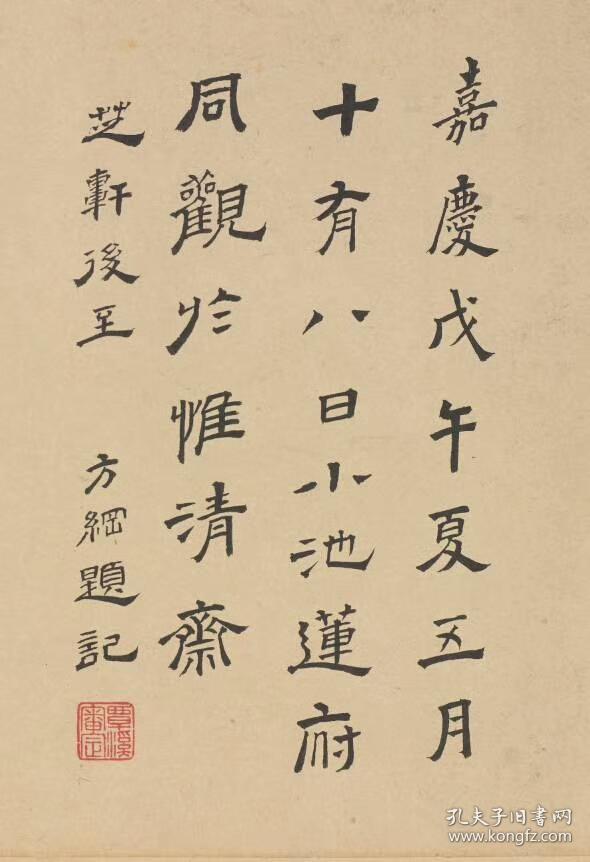 嘉慶戊午夏五月
十有八日小池蓮府
同觀於惟清齋
芝軒後至 方綱題記
覃溪審定
孔夫子旧书网
www.kongfz.com